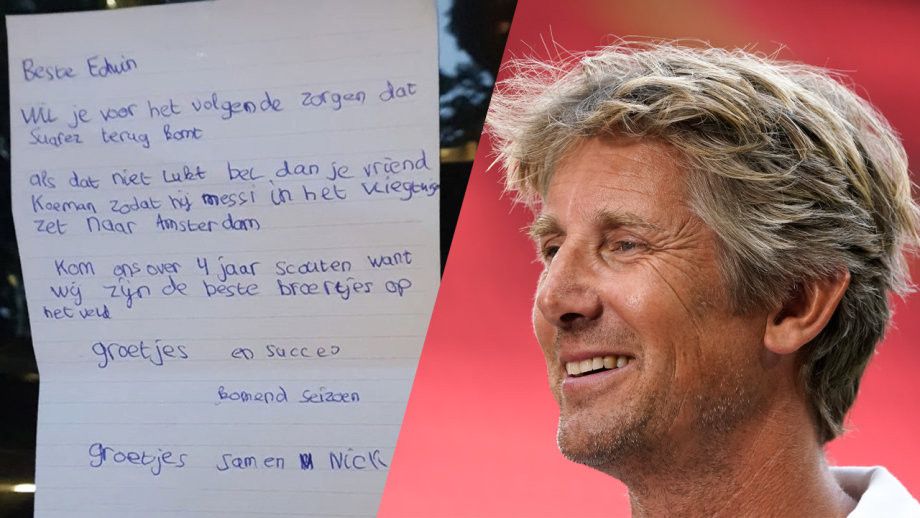 Beste Edwin
Wil je voor het volgende zorgen dat
Suarez terug komt
als dat niet lukt bel dan je vriend
Koeman zodat hij messi in het vliegtuig
zet naar Amsterdam
Kom ons over 4 jaar scouten want
wij zijn de beste broertjes op
het veld
groetjes en succes
komend seizoen
groetjes sam en Nick